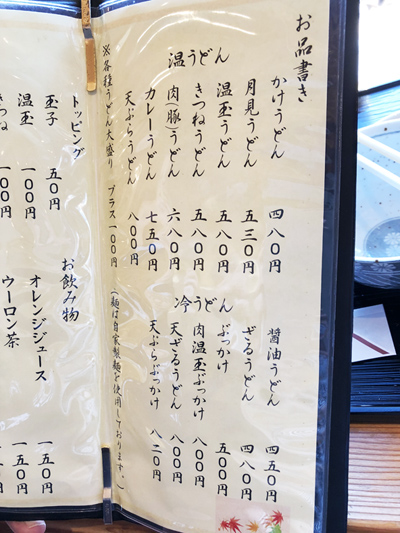 お品書き
温うどん
かけうどん 四八〇円
月見うどん 五三〇円
温玉うどん 五八〇円
きつねうどん 五八〇円
肉(豚)うどん 六八〇円
カレーうどん 七五〇円
天ぷらうどん 八〇〇円
※各種うどん大盛り プラス一〇〇円
冷うどん
醤油うどん 四五〇円
ざるうどん 四八〇円
ぶっかけ 五〇〇円
肉温玉ぶっかけ 八〇〇円
天ざるうどん 八〇〇円
天ぷらぶっかけ 八二〇円
(麺は自家製麺を使用しております。)
トッピング
玉子 五〇円
温玉 一〇〇円
きつね 一〇〇円
お飲み物
オレンジジュース 一五〇円
ウーロン茶 一五〇円